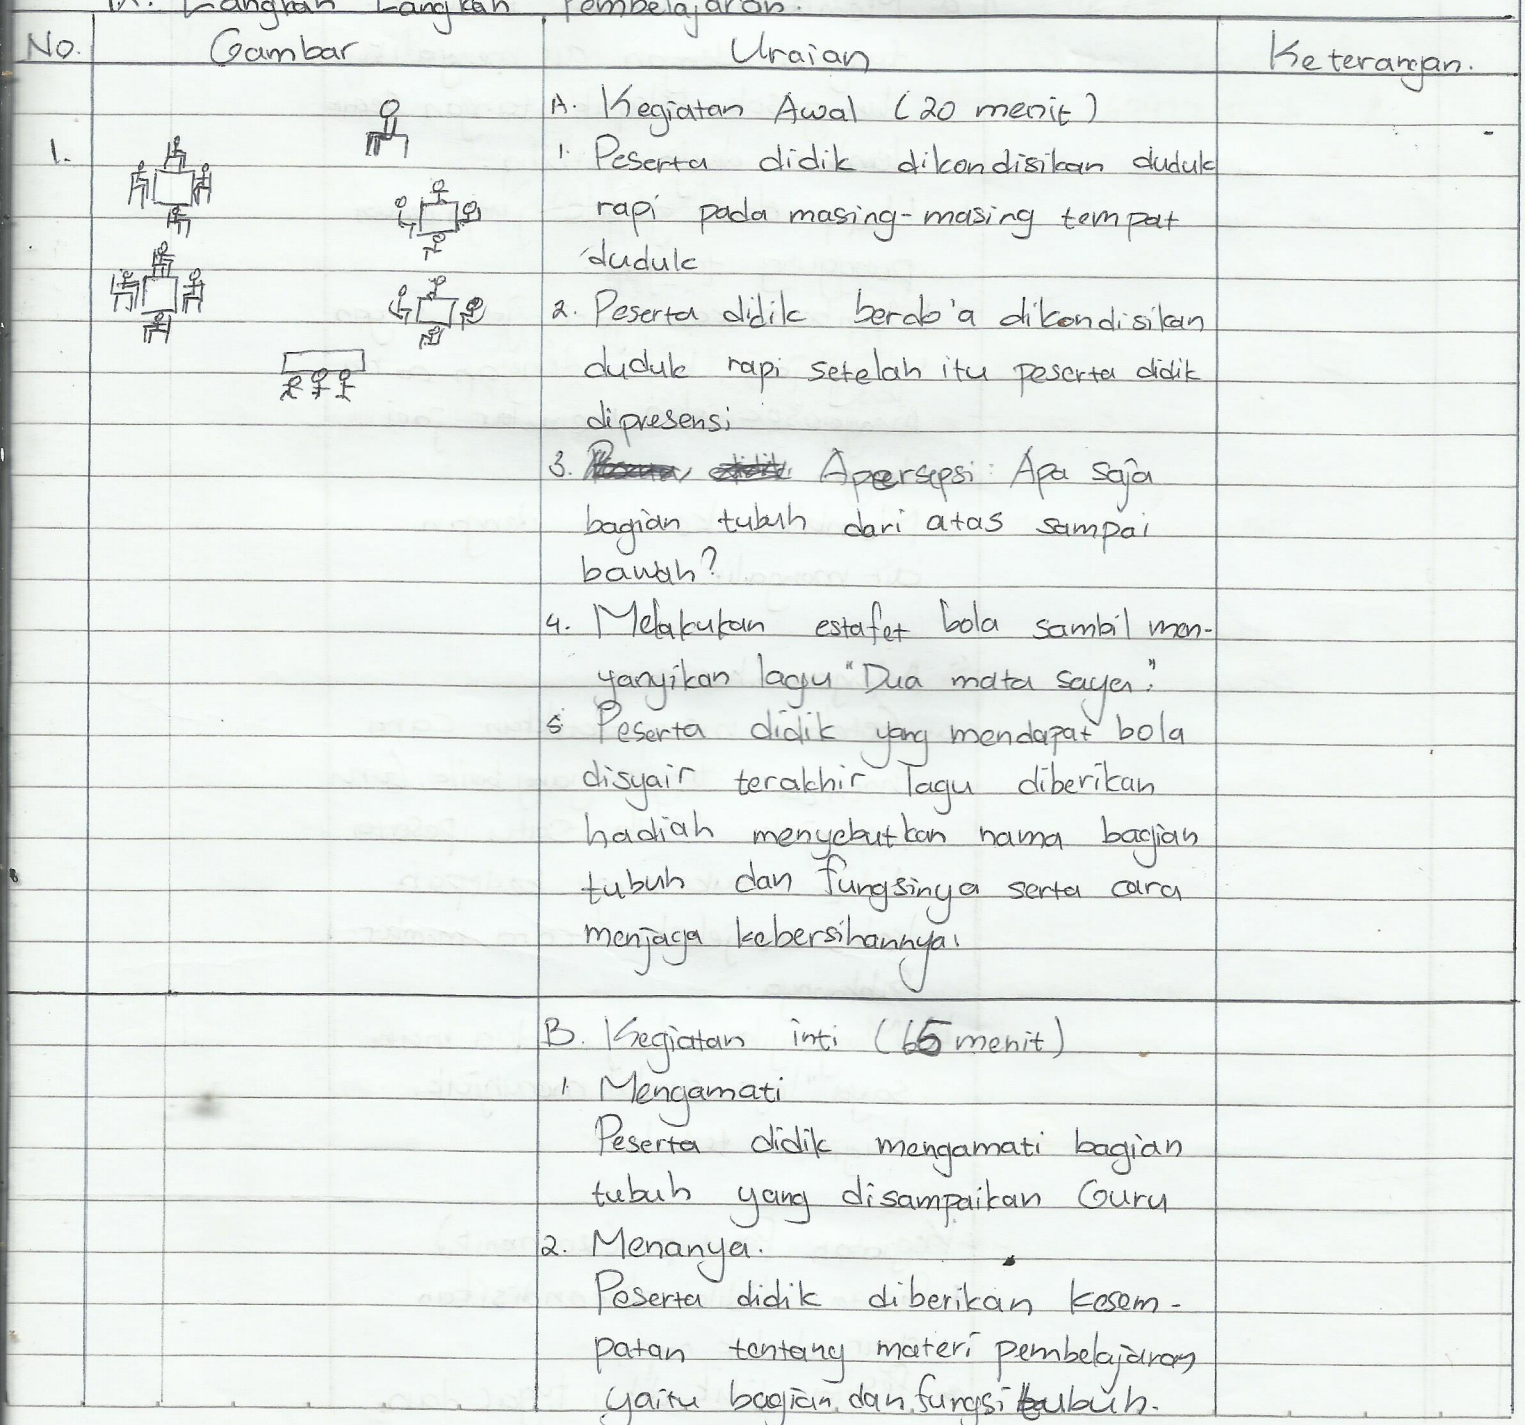 IX. Langkah Langkah Pembelajaran.
No. Gambar Uraian Keterangan.
A. Kegiatan Awal (20 menit)
1. 1. Peserta didik dikondisikan duduk
rapi pada masing-masing tempat
duduk
2. Peserta didik berdo'a dikondisikan
duduk rapi setelah itu peserta didik
dipresensi
3. Apersepsi: Apa saja
bagian tubuh dari atas sampai
bawah?
4. Melakukan estafet bola sambil men-
yanyikan lagu "Dua mata saya."
5. Peserta didik yang mendapat bola
disyair terakhir lagu diberikan
hadiah menyebutkan nama bagian
tubuh dan fungsinya serta cara
menjaga kebersihannya.
B. Kegiatan inti (65 menit)
1. Mengamati
Peserta didik mengamati bagian
tubuh yang disampaikan Guru
2. Menanya.
Peserta didik diberikan kesem-
patan tentang materi pembelajaran
yaitu bagian dan fungsi tubuh.